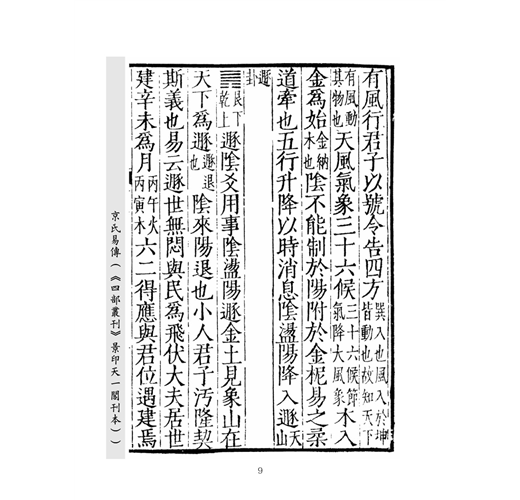 有風行君子以號令告四方巽入也風入於坤皆動也故知天下
有風動其物也天風氣象三十六候三十六候節氣降大風象木入
金為始金納木也陰不能制於陽附於金柅易之柔
道牽也五行升降以時消息陰盪陽降入遯天山
遯卦
䷠艮下乾上遯陰爻用事陰盪陽遯金土見象山在
天下為遯遯退也陰來陽退也小人君子汚隆契
斯義也易云遯世無悶與民為飛伏大夫居世
建辛未為月丙午火丙寅木六二得應與君位遇建焉
京氏易傳(《四部叢刊》景印天一閣刊本)
9